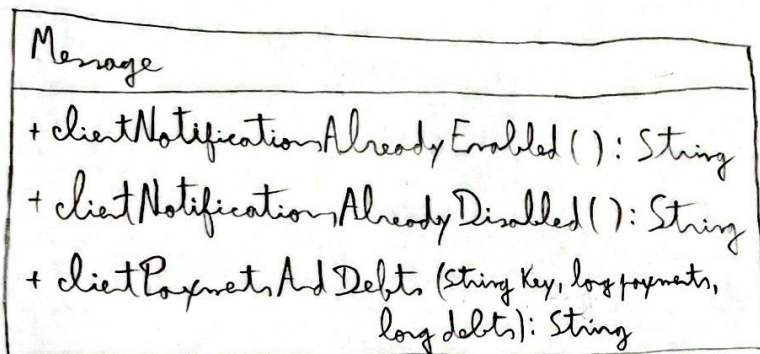 Message
+ clientNotificationsAlreadyEnabled(): String
+ clientNotificationsAlreadyDisabled(): String
+ clientPaymentsAndDebts (String Key, long payments,
long debts): String